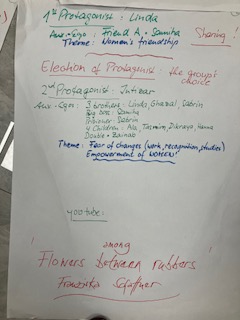 1st Protagonist: Linda
Aux-Ego: Friend A. Samiha
Sharing!
Theme: Women's friendship
Election of Protagonist: the group's choice
2nd Protagonist: Intizar
Aux-Egos: 3 brothers: Linda, Ghazal, Dabrin
Big Boss: Samiha
Dabrin
4 Children: Ala, Tasnim, Zikraya, Hanna
Double: Zainab
Theme: Fear of changes (work, recognition, studies)
Empowerment of WOMEN!
youtube:
among
Flowers between rubbers